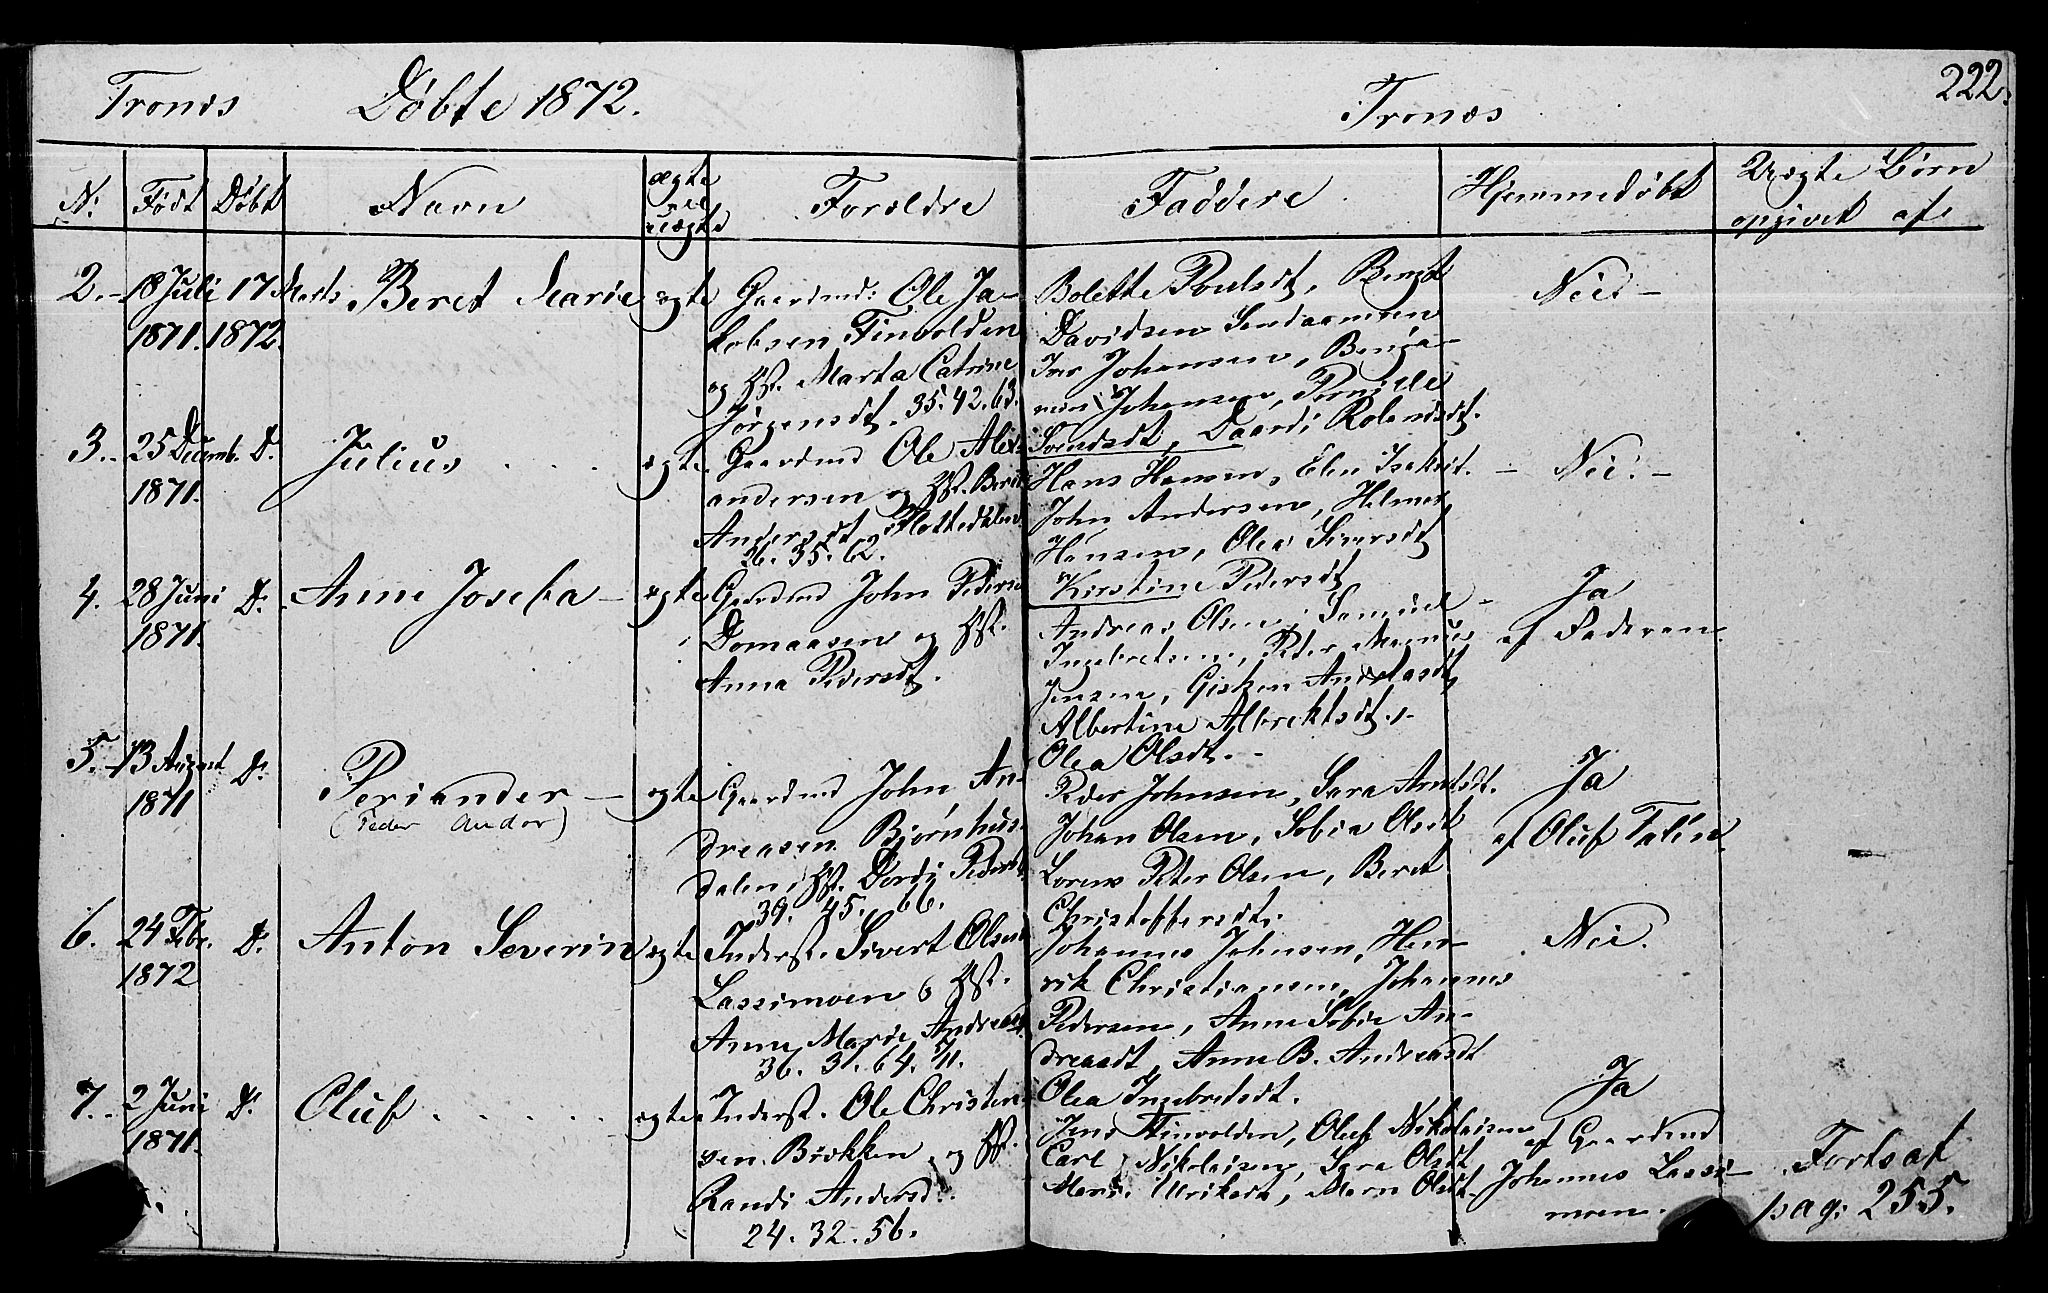 Tronæs Døbte 1872. Tronæs 222.
N: Født Døbt Navn ægte uægte Forældre Faddere Hjemmedøbt Uægte Børn
opgivet af
2. 18 Juli 17 Marts Beret Marie ægte Gaardmd: Ole Ja-
1871. 1872. kobsen Finvolden
og Hst. Marta Catrine
Jørgensdt. 35. 42. 63.
Bolette Poulsdt, Bengt
Davidsen Sandaamoen
Iver Johansen, Benja-
min Johansen, Pernille
Svendsdt, Daardi Rolandsdt.
Nei.-
3. 25 Decemb. D. Julius . . . . ægte Gaardmd Ole Alex-
1871. andersen og Hst. Berit
Andersdt Flottedalen
36. 35. 62.
Hans Hansen, Elen Isaksdt.
John Andersen, Helmer
Hansen, Olea Siversdt
Kirstine Pedersdt
- Nei. -
4. 28 Juni D. Anne Josefa - ægte Gaardmd John Pedersen
1871. Domaasen og Hst.
Anna Pedersdt.
Andreas Olsen, Samuel
Ingebretsen, Peter Magnus
Jensen, Gisken Andreasdt,
Albertine Albrektsdt.,-
Olea Olsdt.-
Ja
af Faderen
5. 13 August D. Periander - ægte Gaardmd John An-
1871 (Peder Ander) dreasen Bjørnhus-
dalen, Hst. Dordi Pedersdt
39. 45. 66.
Peder Johnsen, Sara Arntsdt.
Johan Olsen, Sofia Olsdt
Lorens Peter Olsen, Beret
Christoffersdt.
Ja
af Oluf
6. 24 Febr. D. Anton Severin ægte Inderst. Sivert Olsen
1872 Lassemoen & Hst.
Anne Marie Andreasdt
36. 31. 64. 71.
Johannes Johnsen, Hen-
rik Christiansen, Johannes
Pedersen, Anne Sofie An-
dreasdt, Anne B. Andreasdt
Olea Ingebretsdt.
Nei.
7. 2 Juni D. Oluf . . . . . ægte Inderst. Ole Christen-
1871. sen Brækken, og Hst.
Randi Andersd:.
24. 32. 56.
Jens Finvolden, Oluf Nikolaisen
Carl Nikolaisen, Sara Olsdt
Maren Olsdt.
Ja
af Gaardmd
Johannes Lasse-
moen.
Fortsat
pag: 255.